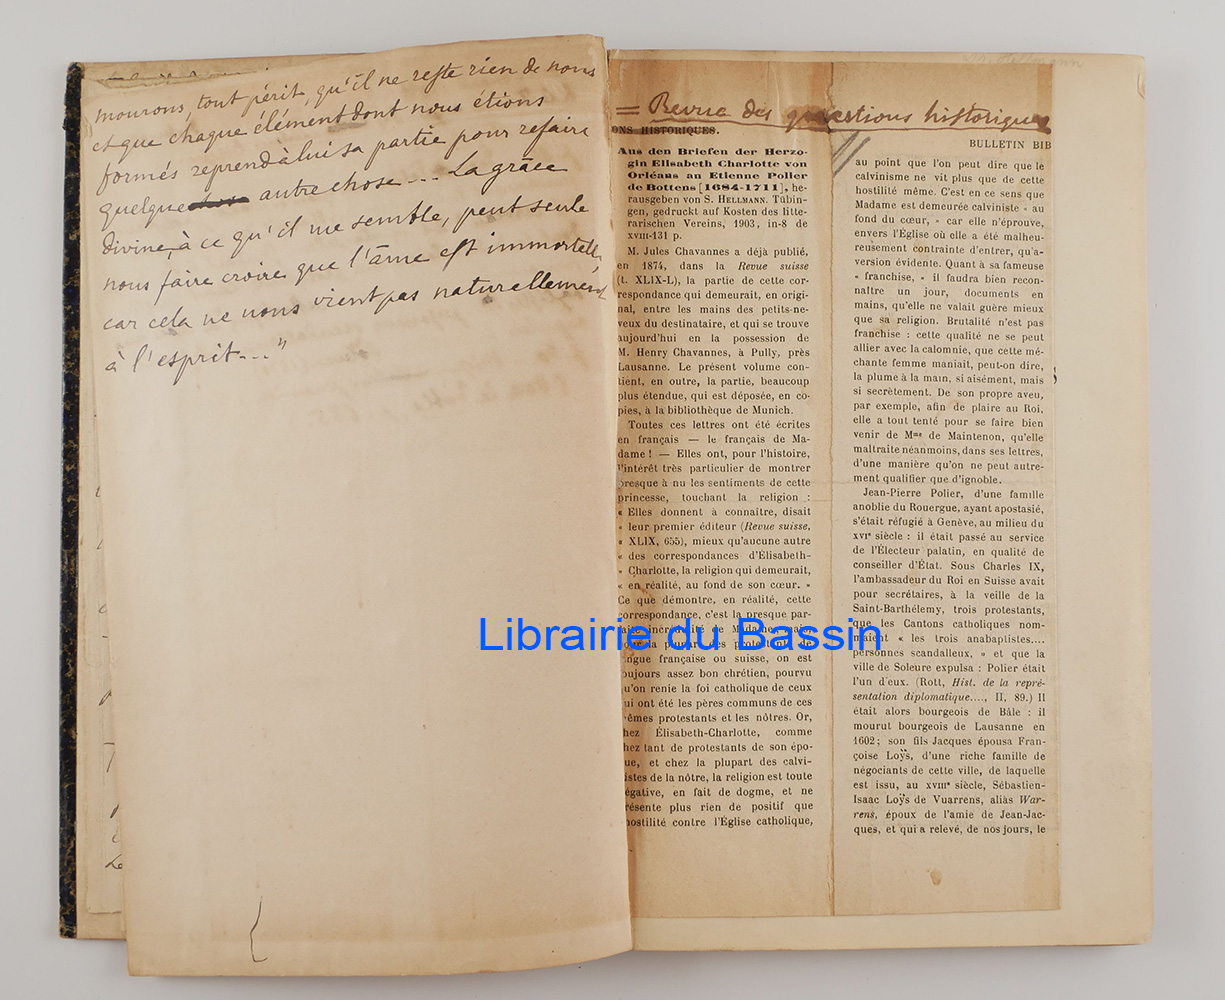 mourons, tout périt, qu'il ne reste rien de nous
et que chaque élément dont nous étions
formés reprend à lui sa partie pour refaire
quelque autre chose... La grâce
divine, à ce qu'il me semble, peut seule
nous faire croire que l'âme est immortelle,
car cela ne nous vient pas naturellement
à l'esprit..."
= Revue des questions historiques
ONS HISTORIQUES.
Aus den Briefen der Herzo-
gin Elisabeth Charlotte von
Orléans an Etienne Polier
de Bottens [1684-1711], he-
rausgeben von S. HELLMANN. Tübin-
gen, gedruckt auf Kosten des litte-
rarischen Vereins, 1903, in-8 de
XVIII-131 p.
M. Jules Chavannes a déjà publié,
en 1874, dans la Revue suisse
(t. XLIX-L), la partie de cette cor-
respondance qui demeurait, en origi-
nal, entre les mains des petits-ne-
veux du destinataire, et qui se trouve
aujourd'hui en la possession de
M. Henry Chavannes, à Pully, près
Lausanne. Le présent volume con-
tient, en outre, la partie, beaucoup
plus étendue, qui est déposée, en co-
pies, à la bibliothèque de Munich.
Toutes ces lettres ont été écrites
en français — le français de Ma-
dame ! — Elles ont, pour l'histoire,
l'intérêt très particulier de montrer
presque à nu les sentiments de cette
princesse, touchant la religion :
« Elles donnent à connaître, disait
« leur premier éditeur (Revue suisse,
« XLIX, 655), mieux qu'aucune autre
« des correspondances d'Elisabeth-
« Charlotte, la religion qui demeurait,
« en réalité, au fond de son cœur. »
Ce que démontre, en réalité, cette
correspondance, c'est la presque par-
faite incrédulité de Madame, mais,
pour la plupart des protestants de
langue française ou suisse, on est
toujours assez bon chrétien, pourvu
qu'on renie la foi catholique de ceux
qui ont été les pères communs de ces
mêmes protestants et les nôtres. Or,
chez Élisabeth-Charlotte, comme
chez tant de protestants de son épo-
que, et chez la plupart des calvi-
nistes de la nôtre, la religion est toute
négative, en fait de dogme, et ne
présente plus rien de positif que
l'hostilité contre l'Église catholique,
BULLETIN BIB
au point que l'on peut dire que le
calvinisme ne vit plus que de cette
hostilité même. C'est en ce sens que
Madame est demeurée calviniste « au
fond du cœur, » car elle n'éprouve,
envers l'Église où elle a été malheu-
reusement contrainte d'entrer, qu'a-
version évidente. Quant à sa fameuse
« franchise, » il faudra bien recon-
naître un jour, documents en
mains, qu'elle ne valait guère mieux
que sa religion. Brutalité n'est pas
franchise : cette qualité ne se peut
allier avec la calomnie, que cette mé-
chante femme maniait, peut-on dire,
la plume à la main, si aisément, mais
si secrètement. De son propre aveu,
par exemple, afin de plaire au Roi,
elle a tout tenté pour se faire bien
venir de Mme de Maintenon, qu'elle
maltraite néanmoins, dans ses lettres,
d'une manière qu'on ne peut autre-
ment qualifier que d'ignoble.
Jean-Pierre Polier, d'une famille
anoblie du Rouergue, ayant apostasié,
s'était réfugié à Genève, au milieu du
XVIe siècle : il était passé au service
de l'Électeur palatin, en qualité de
conseiller d'État. Sous Charles IX,
l'ambassadeur du Roi en Suisse avait
pour secrétaires, à la veille de la
Saint-Barthélemy, trois protestants,
que les Cantons catholiques nom-
maient « les trois anabaptistes....
personnes scandalleux, » et que la
ville de Soleure expulsa : Polier était
l'un d'eux. (Rott, Hist. de la repré-
sentation diplomatique...., II, 89.) Il
était alors bourgeois de Bâle : il
mourut bourgeois de Lausanne en
1602; son fils Jacques épousa Fran-
çoise Loÿs, d'une riche famille de
négociants de cette ville, de laquelle
est issu, au XVIIIe siècle, Sébastien-
Isaac Loÿs de Vuarrens, aliàs War-
rens, époux de l'amie de Jean-Jac-
ques, et qui a relevé, de nos jours, le
Librairie du Bassin